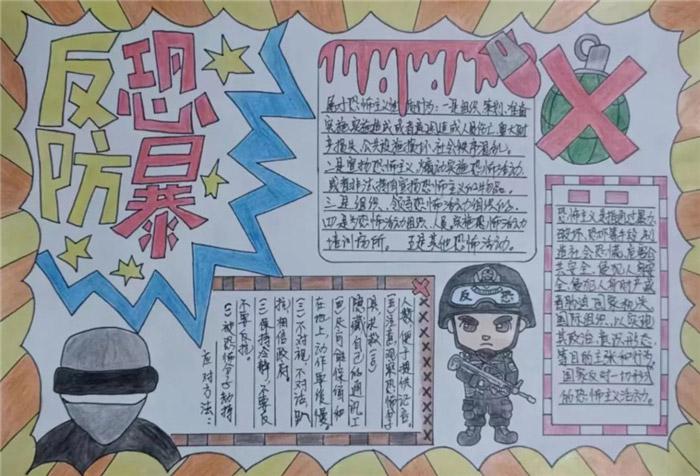 反恐
防暴
属于恐怖主义性质行为:一是组织、策划、准备
实施、实施造成或者意图造成人员伤亡、重大财
产损失、公共设施损坏、社会秩序混乱。
二是宣扬恐怖主义,煽动实施恐怖活动,
或者非法持有宣扬恐怖主义的物品。
三是组织、领导恐怖活动组织的。
四是为恐怖活动组织、人员、实施恐怖活动
培训场所。 五是其他恐怖活动。
恐怖主义是指通过暴力、
破坏、恐吓等手段,制
造社会恐慌,危害公
共安全,侵犯人身安
全,侵犯人身财产,或
者胁迫国家机关、
国际组织,以实现
其政治、意识形态
等目的主张和行为。
国家反对一切形式
的恐怖主义活动。
应对方法:
(一)被恐怖分子劫持
不要反抗。
(二)保持冷静,不要反
抗,相信政府。
(三)不对视,不对话,趴
在地上,动作要缓慢。
(四)尽可能保留和
隐藏自己的通讯工
具。
(五)注意观察恐怖分子
人数,便于提供证言。
反恐